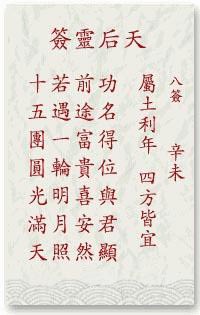 天后靈簽
八簽 辛未
屬土利年 四方皆宜
功名得位與君顯
前途富貴喜安然
若遇一輪明月照
十五團圓光滿天